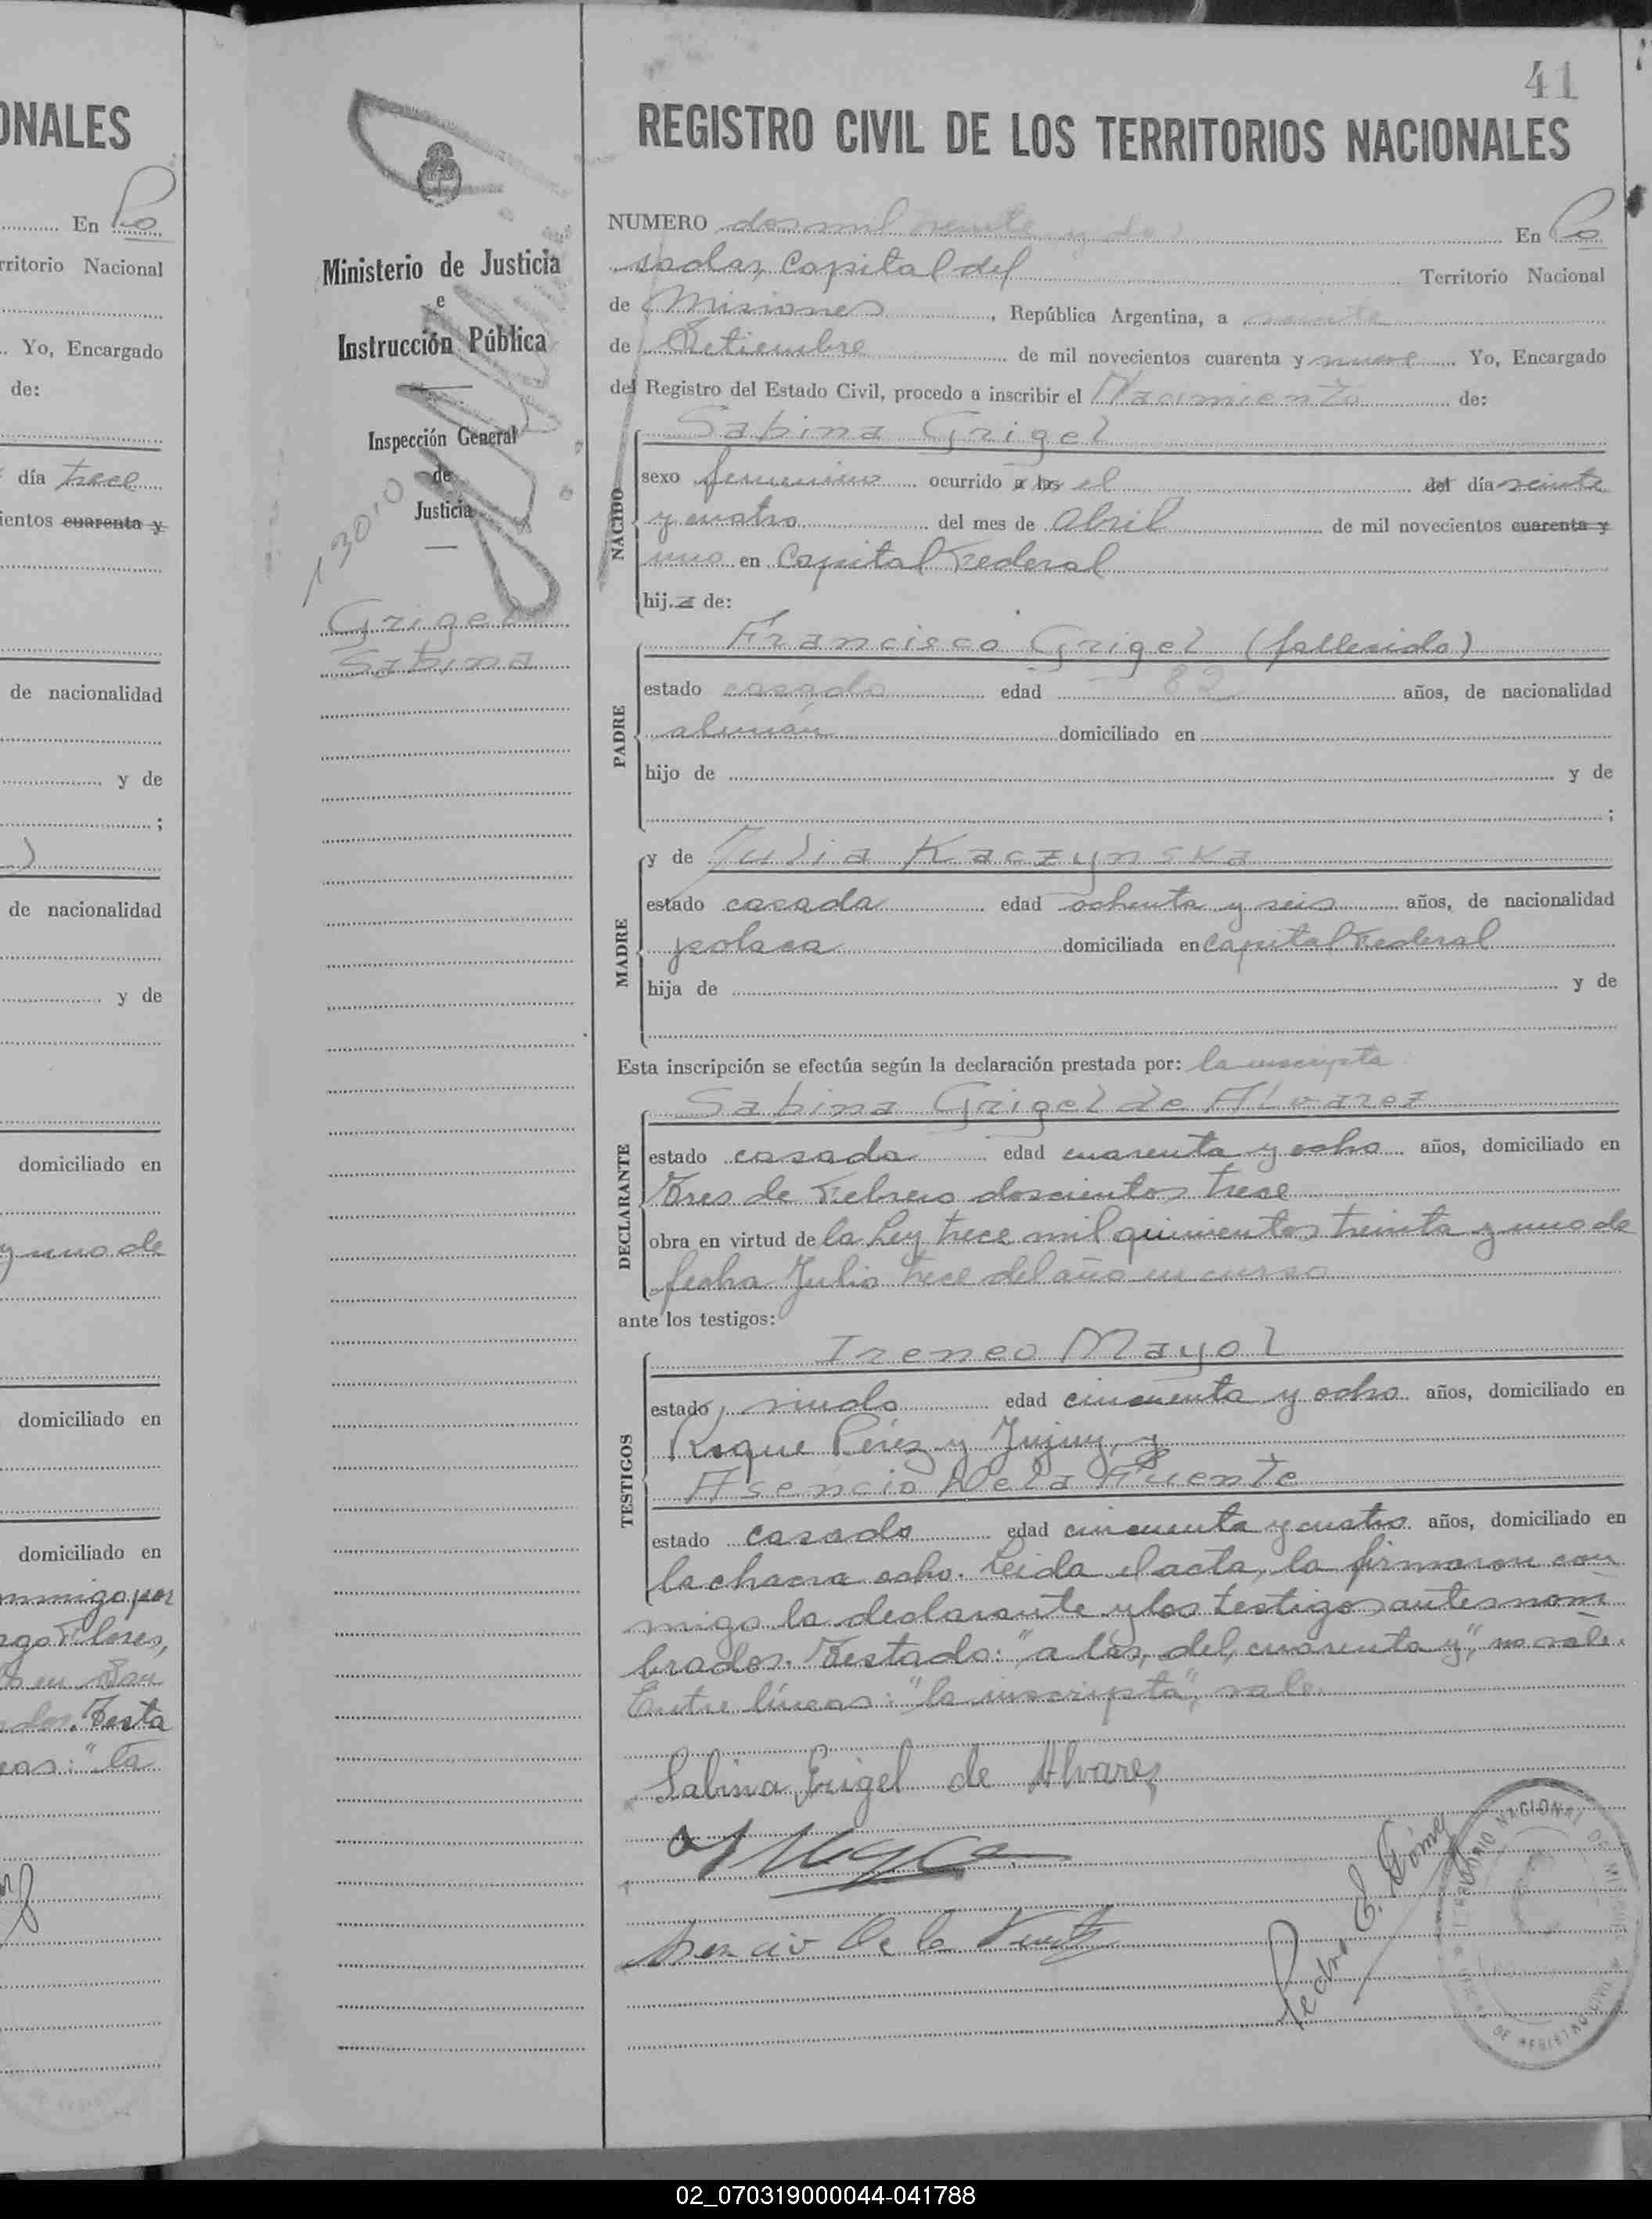 41
ONALES
En Po
rritorio Nacional
Yo, Encargado
de:
día trece
ientos cuarenta y
de nacionalidad
y de
;
)
de nacionalidad
y de
domiciliado en
y uno de
domiciliado en
domiciliado en
nmigo por
go Flores,
en San
Testa
eas: "la
Ministerio de Justicia
e
Instrucción Pública
Inspección General
de
Justicia
Grigel
Sabina
REGISTRO CIVIL DE LOS TERRITORIOS NACIONALES
NUMERO dos mil veinte y dos En Po
sadas, Capital del Territorio Nacional
de Misiones, República Argentina, a veinte
de Setiembre de mil novecientos cuarenta y nueve Yo, Encargado
del Registro del Estado Civil, procedo a inscribir el Nacimiento de:
NACIDO
Sabina Grigel
sexo femenino ocurrido a las el del día veinte
y cuatro del mes de Abril de mil novecientos cuarenta y
uno en Capital Federal
hija de:
PADRE
Francisco Grigel (fallecido)
estado casado edad 82 años, de nacionalidad
alemán domiciliado en
hijo de y de
;
MADRE
y de Julia Kaczynska
estado casada edad ochenta y seis años, de nacionalidad
polaca domiciliada en Capital Federal
hija de y de
Esta inscripción se efectúa según la declaración prestada por: la inscripta
DECLARANTE
Sabina Grigel de Alvarez
estado casada edad cuarenta y ocho años, domiciliado en
Tres de Febrero doscientos trece
obra en virtud de la Ley trece mil quinientos treinta y uno de
fecha Julio trece del año en curso
ante los testigos:
TESTIGOS
Ireneo Mayol
estado viudo edad cincuenta y ocho años, domiciliado en
Roque Pérez y Jujuy, y
Asencio De la Fuente
estado casado edad cincuenta y cuatro años, domiciliado en
la chacra ocho. Leida el acta, la firmaron con
migo la declarante y los testigos antes nom
brados. Testado: "a las, del, cuarenta y", no vale.
Entre líneas: "la inscripta", vale.
Sabina Grigel de Alvarez
Asencio De la Fuente
Pedro E. Gómez
02_070319000044-041788